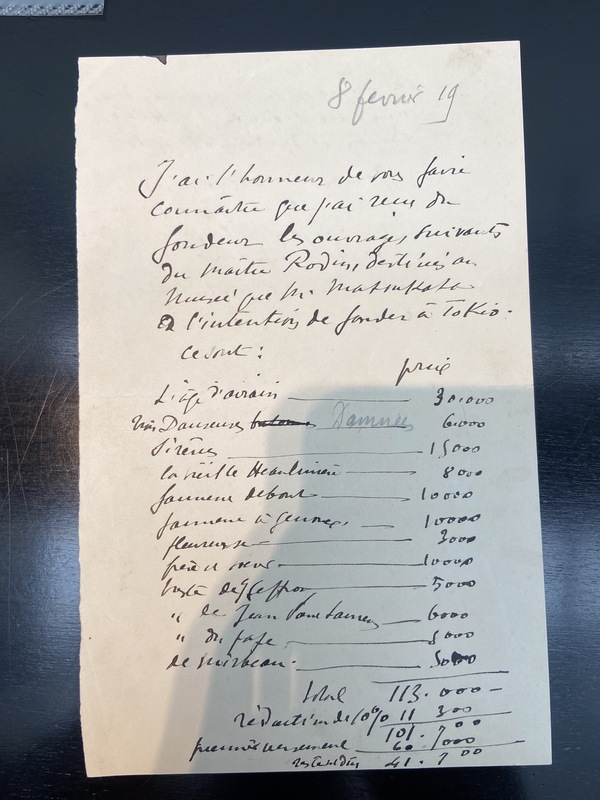 8 février 19
J'ai l'honneur de vous faire
connaître que j'ai reçu du
fondeur les ouvrages suivants
du maître Rodin, destinés au
Musée que M. Matsukata
a l'intention de fonder à Tokio.
ce sont :
prix
L'âge d'airain 30.000
trois Danseuses Damnées 6000
Sirènes 15000
la vieille Heaulmière 8000
faunesse debout 10000
faunesse à genoux 10000
pleureuse 3000
frère et soeur 10000
buste de Geffroy 5000
" de Jean Paul Laurens 6000
" du pape 5000
de Mirbeau 5000
total 113.000
réduction de 10% 11 300
101.700
premier versement 60.000
reste dû 41.700